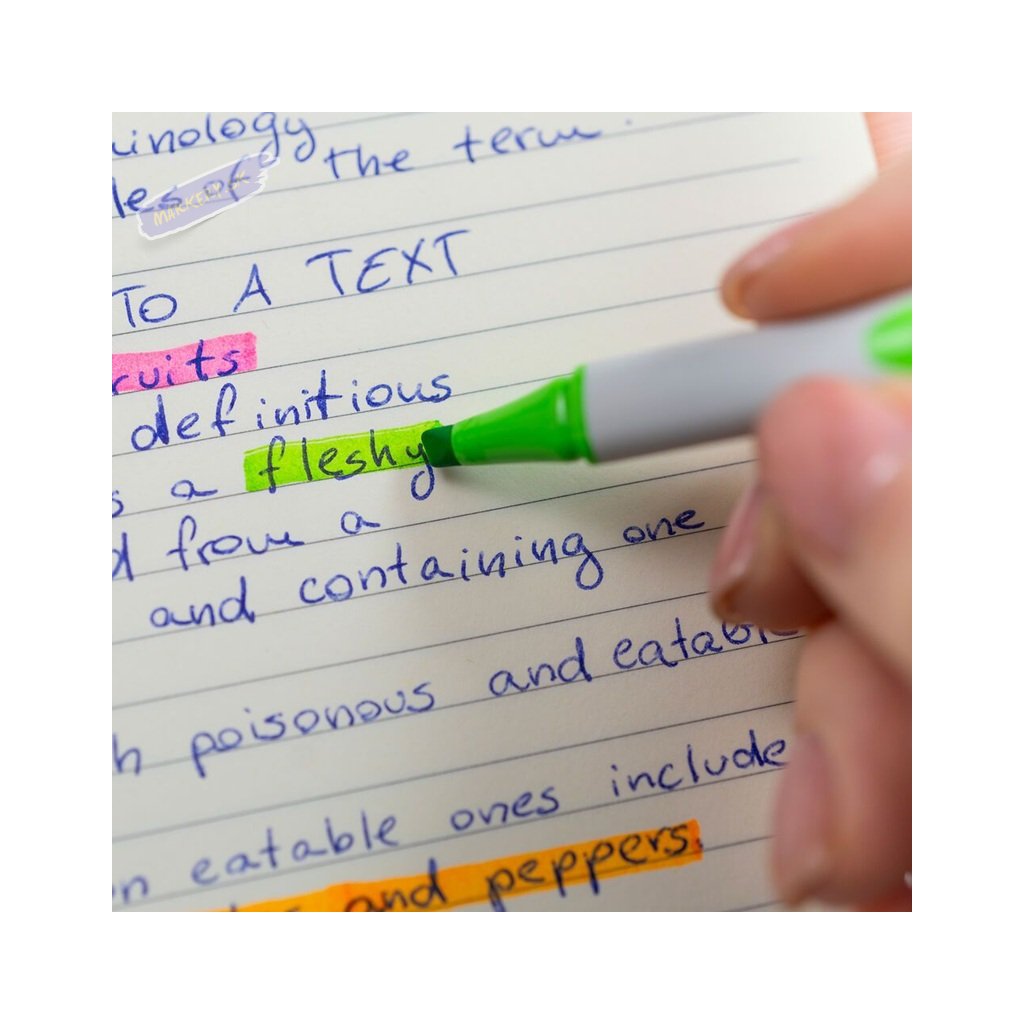 inology
les of the term.
MARKERY.SK
TO A TEXT
ruits
definitions
s a fleshy
d from a
and containing one
h poisonous and eatable
n eatable ones include
and peppers.